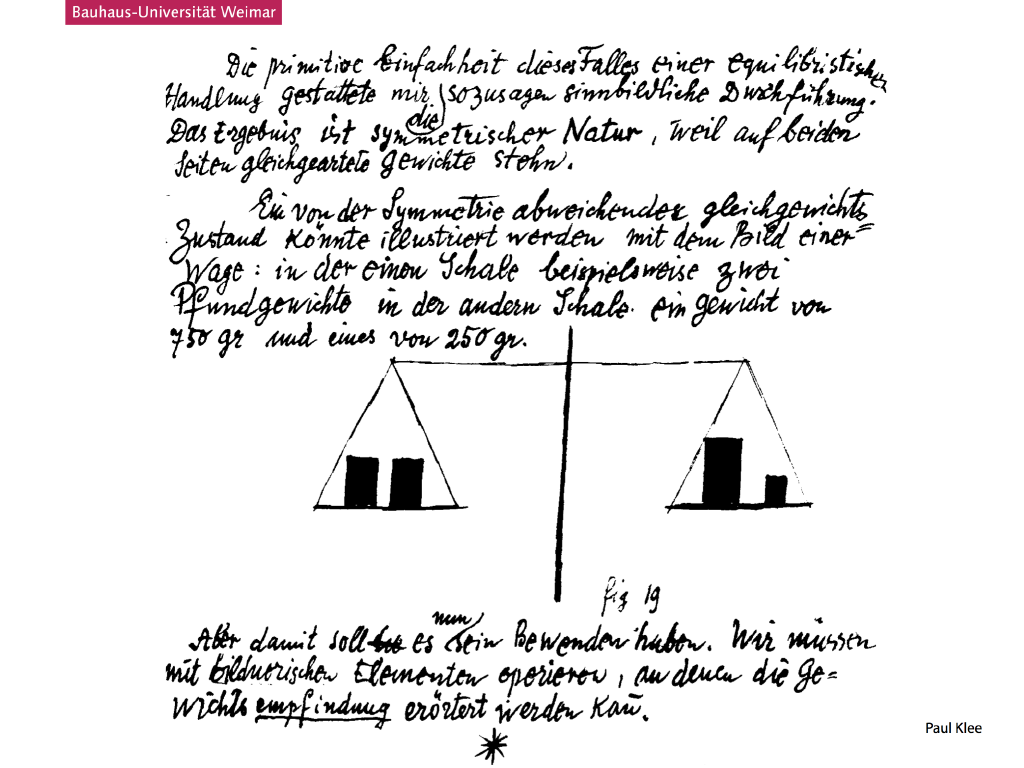 Bauhaus-Universität Weimar
Die primitive Einfachheit dieses Falles einer equilibristischen
Handlung gestattete mir die sozusagen sinnbildliche Durchführung.
Das Ergebnis ist symmetrischer Natur, weil auf beiden
Seiten gleichgeartete Gewichte stehn.
Ein von der Symmetrie abweichender gleichgewichts
Zustand könnte illustriert werden mit dem Bild einer
Wage: in der einen Schale beispielsweise zwei
Pfundgewichte in der andern Schale ein gewicht von
750 gr und eines von 250 gr.
fig 19
Aber damit soll es nun sein Bewenden haben. Wir müssen
mit bildnerischen Elementen operieren, an denen die Ge=
wichts empfindung erörtert werden kañ.
Paul Klee